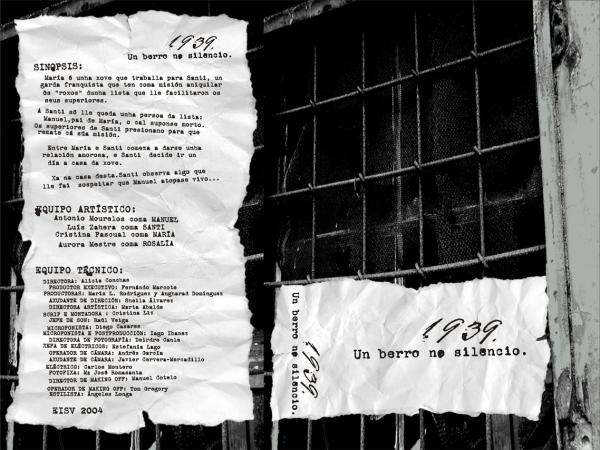 1939.
Un berro no silencio.
SINOPSIS:
María é unha xove que traballa para Santi, un
garda franquista que ten coma misión aniquilar
ós "roxos" dunha lista que lle facilitaron os
seus superiores.
A Santi só lle queda unha persoa da lista:
Manuel,pai de María, o cal suponse morto.
Os superiores de Santi presionano para que
remate cá súa misión.
Entre María e Santi comeza a darse unha
relación amorosa, e Santi decide ir un
día a casa da xove.
Xa na casa desta.Santi observa algo que
lle fai sospeitar que Manuel atopase vivo...
EQUIPO ARTÍSTICO:
Antonio Mourelos coma MANUEL
Luís Zahera coma SANTI
Cristina Pascual coma MARÍA
Aurora Mestre coma ROSALÍA
EQUIPO TÉCNICO:
DIRECTORA: Alicia Conchas
PRODUCTOR EXECUTIVO: Fernándo Marcote
PRODUCTORAS: María L. Rodríguez y Angharad Domínguez
AXUDANTE DE DIRECIÓN: Sheila Álvarez
DIRECTORA ARTÍSTICA: Marta Abalde
SCRIP E MONTADORA : Cristina Liz
JEFE DE SON: Raúl Veiga
MICROFONISTA: Diego Casares
MICROFONISTA E POSTPRODUCCIÓN: Iago Ibanez
DIRECTORA DE FOTOGRAFÍA: Deirdre Canle
XEFA DE ELÉCTRICOS: Estefanía Lago
OPERADOR DE CÁMARA: Andrés García
AXUDANTE DE CÁMARA: Javier Cervera-Mercadillo
ELÉCTRICO: Carlos Montero
FOTOFIXA: Ma José Romasanta
DIRECTOR DE MAKING OFF: Manuel Cotelo
OPERADOR DE MAKING OFF: Tom Gregory
ESTILISTA: Ángeles Longa
EISV 2004
Un berro no silencio.
1939
1939.
Un berro no silencio.